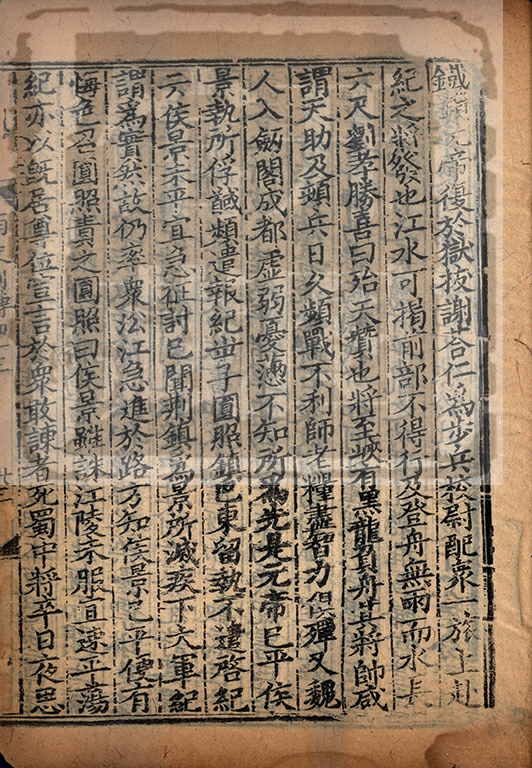 鐵鎖元帝復於獄拔謝荅仁爲步兵校尉配衆一旅上赴
紀之將發也江水可揭前部不得行及登舟無雨而水長
六尺劉孝勝喜曰殆天贊也將至峽有黑龍負舟其將帥咸
謂天助及頓兵日久頻戰不利師老糧盡智力俱殫又魏
人入劒閣成都虛弱憂懣不知所爲先是元帝已平侯
景執所俘馘頻遣報紀世子圓照鎮巴東留執不遣啓紀
云侯景未平宜急征討已聞荆鎮爲景所滅疾下大軍紀
謂爲實然故仍率衆沿江急進於路方知侯景已平便有
悔色召圓照責之圓照曰侯景雖誅江陵未服宜速平蕩
紀亦以旣居尊位宣言於衆敢諫者死蜀中將卒日夜思